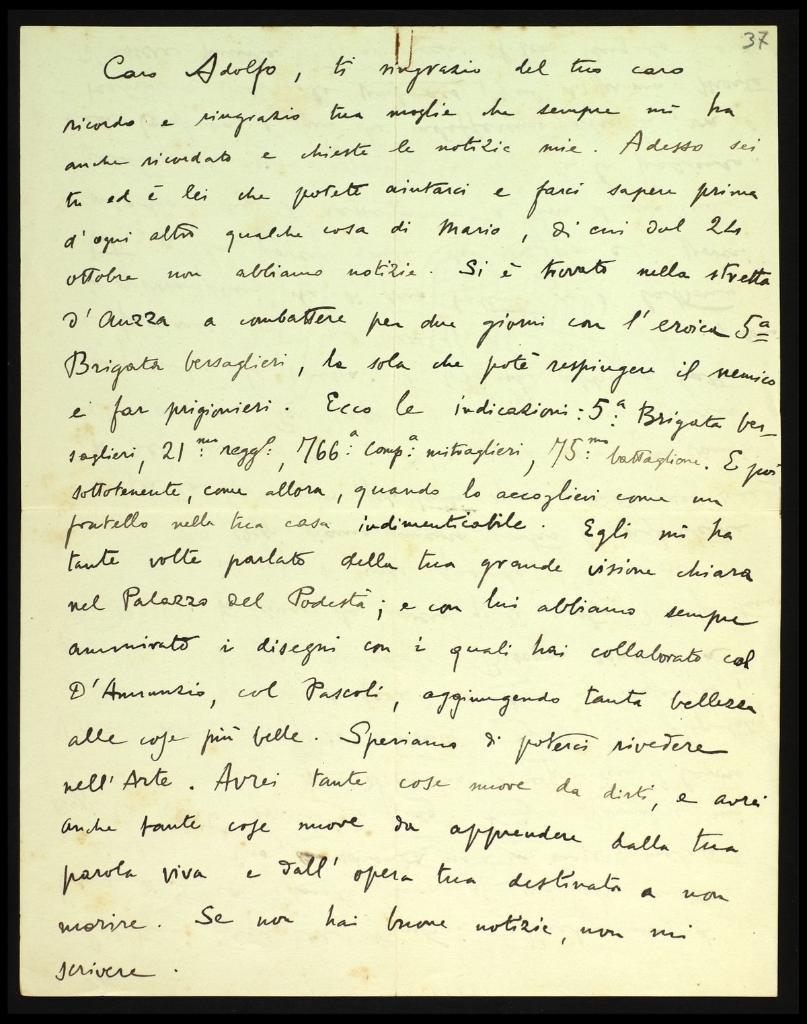 37
Caro Adolfo, ti ringrazio del tuo caro
ricordo e ringrazio tua moglie che sempre mi ha
anche ricordato e chieste le notizie mie. Adesso sei
tu ed è lei che potete aiutarci e farci sapere prima
d'ogni altro qualche cosa di Mario, di cui dal 24
ottobre non abbiamo notizie. Si è trovato nella stretta
d'Auzza a combattere per due giorni con l'eroica 5ª
Brigata bersaglieri, la sola che potè respingere il nemico
e far prigionieri. Ecco le indicazioni: 5.ª Brigata ber-
saglieri, 21.mo regg.º, 766.ª comp.ª mitraglieri, 75.mo battaglione. E poi
sottotenente, come allora, quando lo accoglievi come un
fratello nella tua casa indimenticabile. Egli mi ha
tante volte parlato della tua grande visione chiara
nel Palazzo del Podestà; e con lui abbiamo sempre
ammirato i disegni con i quali hai collaborato col
D'Annunzio, col Pascoli, aggiungendo tanta bellezza
alle cose più belle. Speriamo di poterci rivedere
nell'Arte. Avrei tante cose nuove da dirti, e avrei
anche tante cose nuove da apprendere dalla tua
parola viva e dall'opera tua destinata a non
morire. Se non hai buone notizie, non mi
scrivere.